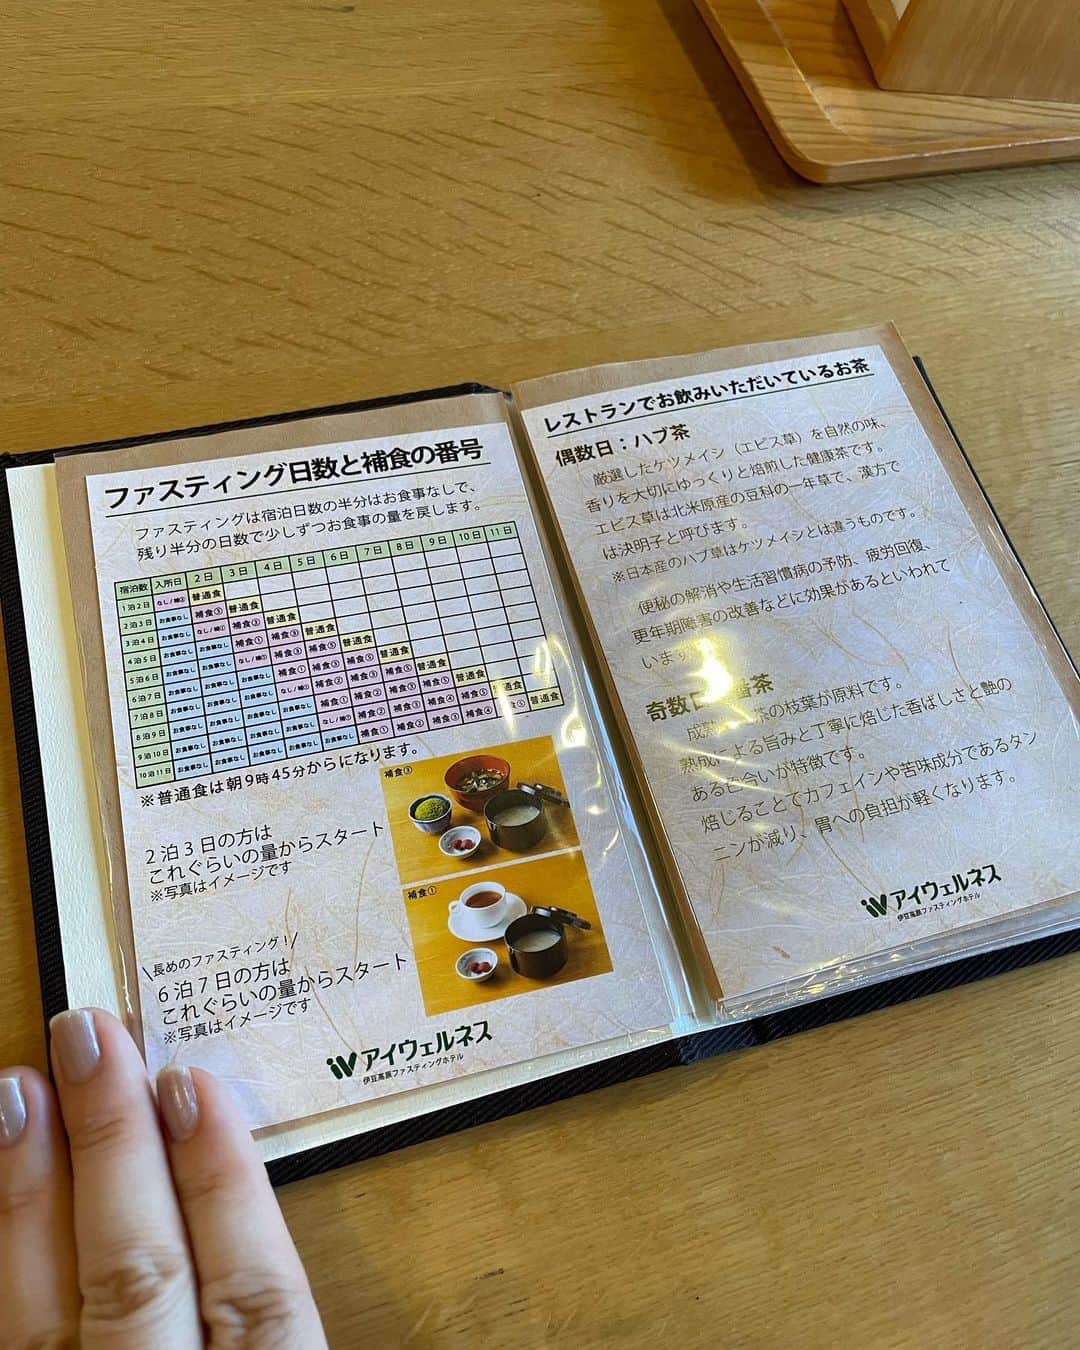 ファスティング日数と補食の番号
ファスティングは宿泊日数の半分はお食事なしで、
残り半分の日数で少しずつお食事の量を戻します。
宿泊数 入所日 2日 3日 4日 5日 6日 7日 8日 9日 10日 11日
1泊2日 なし/補③ 普通食
2泊3日 お食事なし 補食③ 普通食
3泊4日 お食事なし なし/補② 補食③ 普通食
4泊5日 お食事なし お食事なし 補食① 補食③ 普通食
5泊6日 お食事なし お食事なし なし/補① 補食③ 補食⑤ 普通食
6泊7日 お食事なし お食事なし お食事なし 補食① 補食③ 補食⑤ 普通食
7泊8日 お食事なし お食事なし お食事なし なし/補① 補食② 補食③ 補食⑤ 普通食
8泊9日 お食事なし お食事なし お食事なし お食事なし 補食① 補食② 補食③ 補食⑤ 普通食
9泊10日 お食事なし お食事なし お食事なし お食事なし なし/補① 補食② 補食③ 補食④ 補食⑤ 普通食
10泊11日 お食事なし お食事なし お食事なし お食事なし お食事なし 補食① 補食② 補食③ 補食④ 普通食
※普通食は朝9時45分からになります。
補食③
2泊3日の方は
これぐらいの量からスタート
※写真はイメージです
補食①
\長めのファスティング！/
6泊7日の方は
これぐらいの量からスタート
※写真はイメージです
アイウェルネス
伊豆高原ファスティングホテル
レストランでお飲みいただいているお茶
偶数日：ハブ茶
厳選したケツメイシ（エビス草）を自然の味、
香りを大切にゆっくりと焙煎した健康茶です。
エビス草は北米原産の豆科の一年草で、漢方で
は決明子と呼びます。
※日本産のハブ草はケツメイシとは違うものです。
便秘の解消や生活習慣病の予防、疲労回復、
更年期障害の改善などに効果があるといわれて
います
奇数日 番茶
成熟 茶の枝葉が原料です。
熟成による旨みと丁寧に焙じた香ばしさと艶の
ある色合いが特徴です。
焙じることでカフェインや苦味成分であるタン
ニンが減り、胃への負担が軽くなります。
アイウェルネス
伊豆高原ファスティングホテル